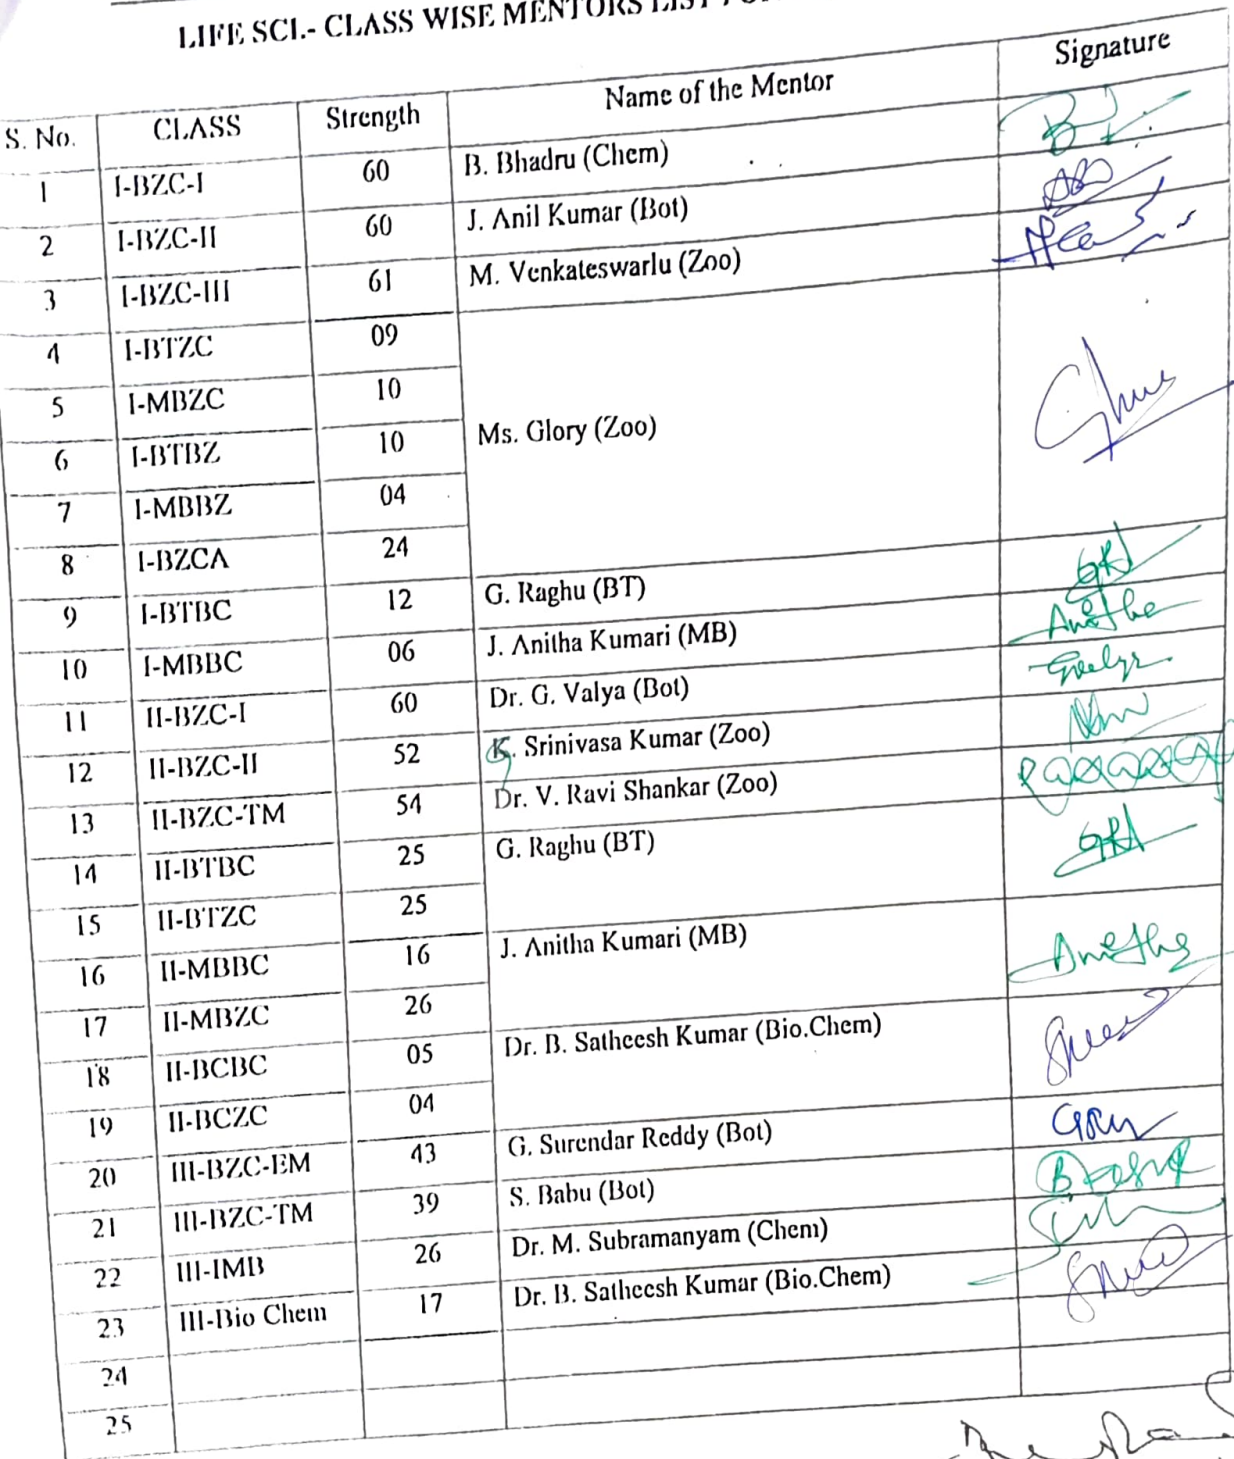 LIFE SCI.- CLASS WISE MENTORS LIST
S. No. CLASS Strength Name of the Mentor Signature
1 I-BZC-I 60 B. Bhadru (Chem)
2 I-BZC-II 60 J. Anil Kumar (Bot)
3 I-BZC-III 61 M. Venkateswarlu (Zoo)
4 I-BTZC 09
5 I-MBZC 10
6 I-BTBZ 10 Ms. Glory (Zoo)
7 I-MBBZ 04
8 I-BZCA 24
9 I-BTBC 12 G. Raghu (BT)
10 I-MBBC 06 J. Anitha Kumari (MB) Anitha
11 II-BZC-I 60 Dr. G. Valya (Bot)
12 II-BZC-II 52 K. Srinivasa Kumar (Zoo)
13 II-BZC-TM 54 Dr. V. Ravi Shankar (Zoo)
14 II-BTBC 25 G. Raghu (BT)
15 II-BTZC 25
16 II-MBBC 16 J. Anitha Kumari (MB) Anitha
17 II-MBZC 26
18 II-BCBC 05 Dr. B. Satheesh Kumar (Bio.Chem)
19 II-BCZC 04
20 III-BZC-EM 43 G. Surendar Reddy (Bot)
21 III-BZC-TM 39 S. Babu (Bot)
22 III-IMB 26 Dr. M. Subramanyam (Chem)
23 III-Bio Chem 17 Dr. B. Satheesh Kumar (Bio.Chem)
24
25